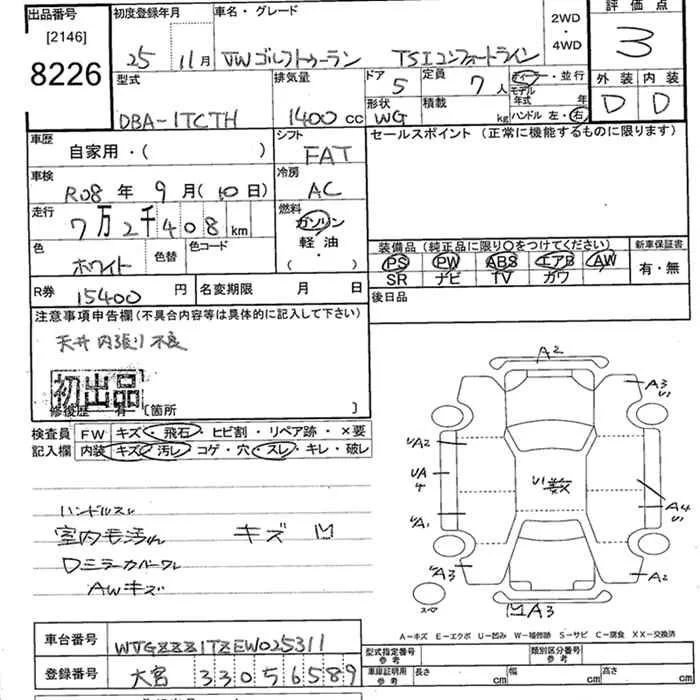 出品番号
[2146]
8226
初度登録年月
25年 11月
車名・グレード
VWゴルフトゥーラン TSIコンフォートライン
2WD
・
4WD
評価点
3
外装 内装
D D
型式
DBA-1TCTH
排気量
1400cc
ドア
5
定員
7人
形状
WG
積載
kg
ディーラー・並行
モデル年式 年
ハンドル 左・右
車歴
自家用・( )
シフト
FAT
セールスポイント (正常に機能するものに限ります)
車検
R08年 9月 (10日)
冷房
AC
走行
7万2千408km
燃料
ガソリン
軽油
( ・ )
色
ホワイト
色替
色コード
装備品 (純正品に限り○をつけてください)
PS PW ABS エアB AW
SR ナビ TV カワ
新車保証書
有・無
R券
15400円
名変期限 月 日
後日品
注意事項申告欄 (不具合内容等は具体的に記入して下さい)
天井内張り不良
初出品
修復歴 有 [箇所 ]
検査員記入欄
FW キズ・飛石・ヒビ割・リペア跡・×要
内装 キズ・汚レ・コゲ・穴・スレ・キレ・破レ
ハンドルスレ
室内モ汚れ キズ 凹
Dミラーカバーワレ
AWキズ
A2
A3
U1
UA2
UA
4
UA1
U1数
A4
U1
A3
A2
スペ
凹A3
A-キズ E-エクボ U-凹み W-補修跡 S-サビ C-腐食 XX-交換済
車台番号
WVGZZZ1TZEW025311
登録番号
大宮 330 5 6589
型式指定番号
参考
類別区分番号
参考
車庫証明用
参考
長さ cm 幅 cm 高さ cm